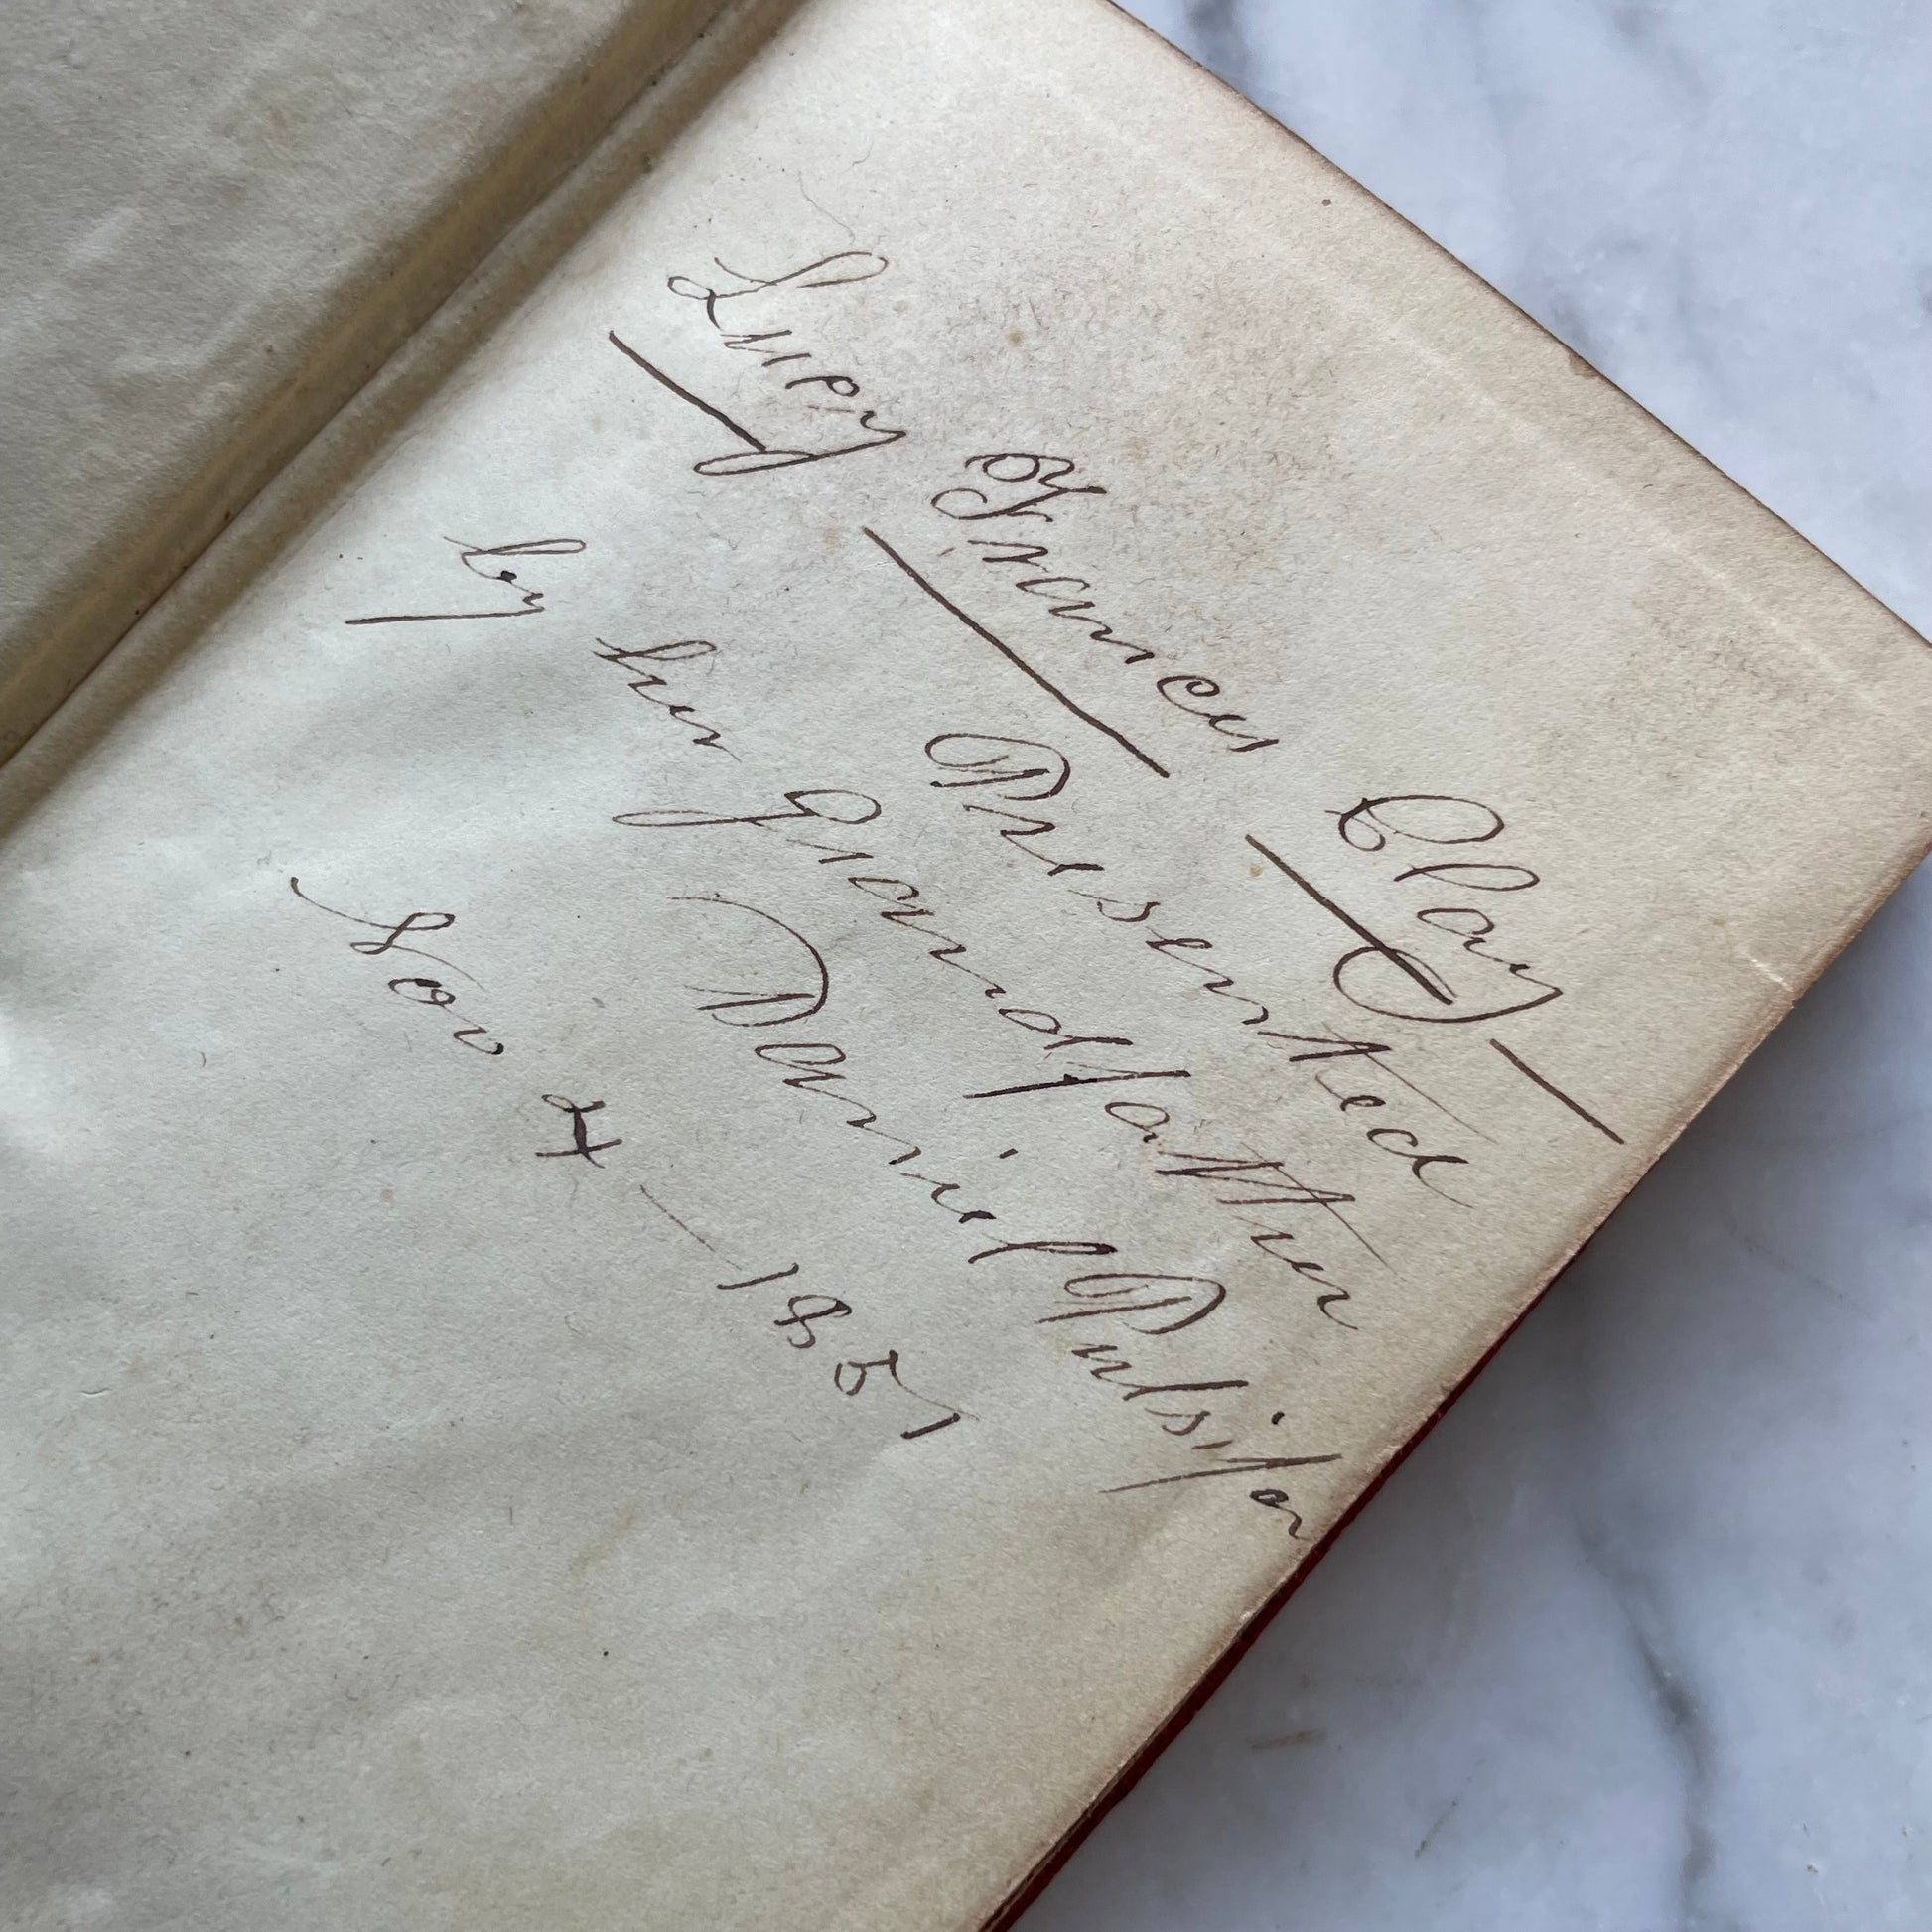 Lucy Frances Clay
Presented
by her Grandfather
Daniel Pulsifor
Nov 4 - 1851